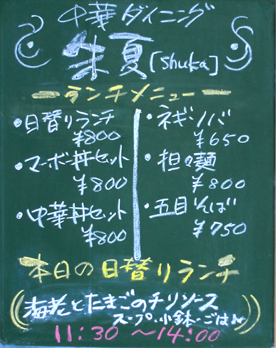 中華ダイニング
朱夏[shuka]
ランチメニュー
・日替りランチ
¥800
・マーボ丼セット
¥800
・中華丼セット
¥800
・ネギソバ
¥650
・担々麺
¥800
・五目そば
¥750
本日の日替りランチ
海老とたまごのチリソース
スープ・小鉢・ごはん
11:30 〜14:00